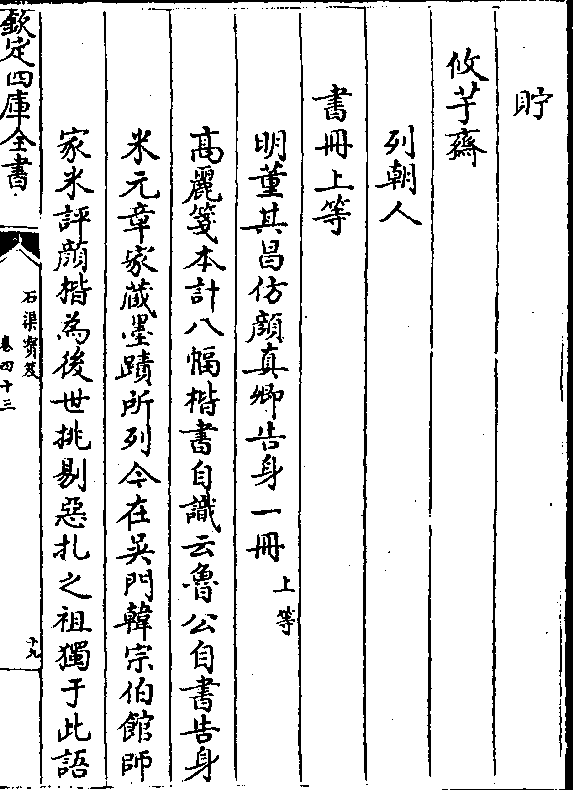 貯
攸芋齋
列朝人
書冊上等
明董其昌仿顔真卿告身一冊上等
髙麗箋本計八幅楷書自識云魯公自書告身
米元章家藏墨蹟所列今在吳門韓宗伯館師
家米評顔楷為後世挑剔惡札之祖獨于此語
欽定四庫全書
石渠寳笈
卷四十三
十九